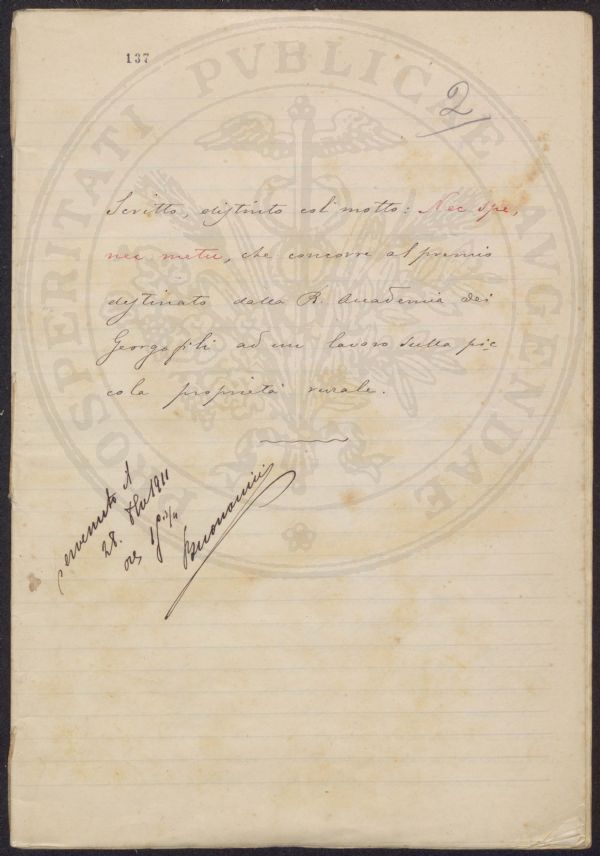 137
2
Scritto, distinto col motto: Nec spe,
nec metu, che concorre al premio
destinato dalla R. Accademia dei
Georgofili ad un lavoro sulla pic
cola proprietà rurale.
pervenuto il
28. 1911
ore
Buonomini
PROSPERITATI PVBLICAE AVGENDAE